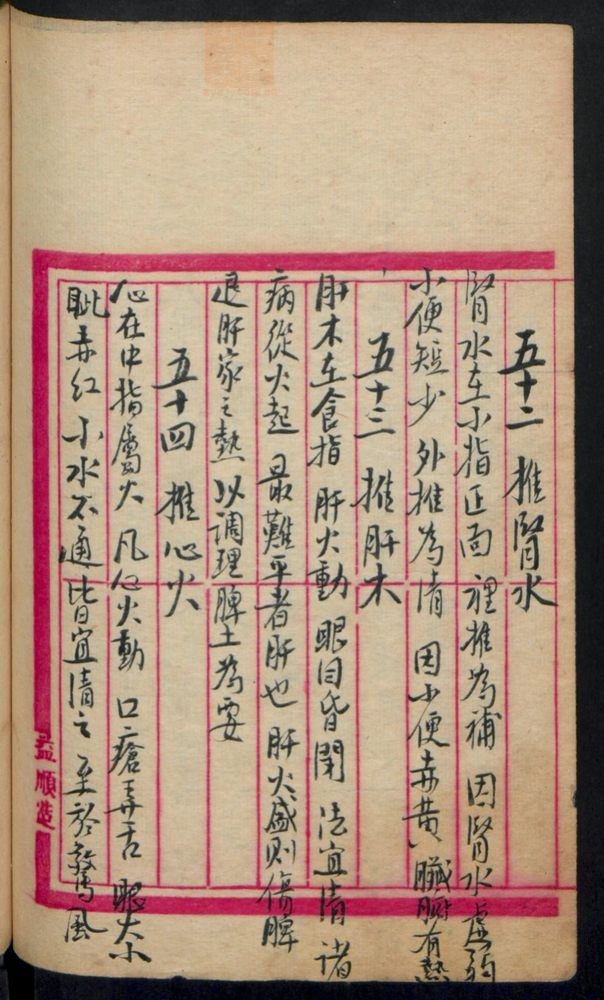 五十二 推腎水
腎水在小指正面 裡推為補 因腎水虛弱
小便短少 外推為清 因小便赤黄 臟腑有熱
五十三 推肝木
肝木在食指 肝火動 眼目昏閉 法宜清 諸
病從火起 最難平者肝也 肝火盛則傷脾
退肝家之熱 以調理脾土為要
五十四 推心火
心在中指屬火 凡心火動 口瘡弄舌 眼大小
眦赤紅 小水不通 皆宜清之 至於驚風
益順造